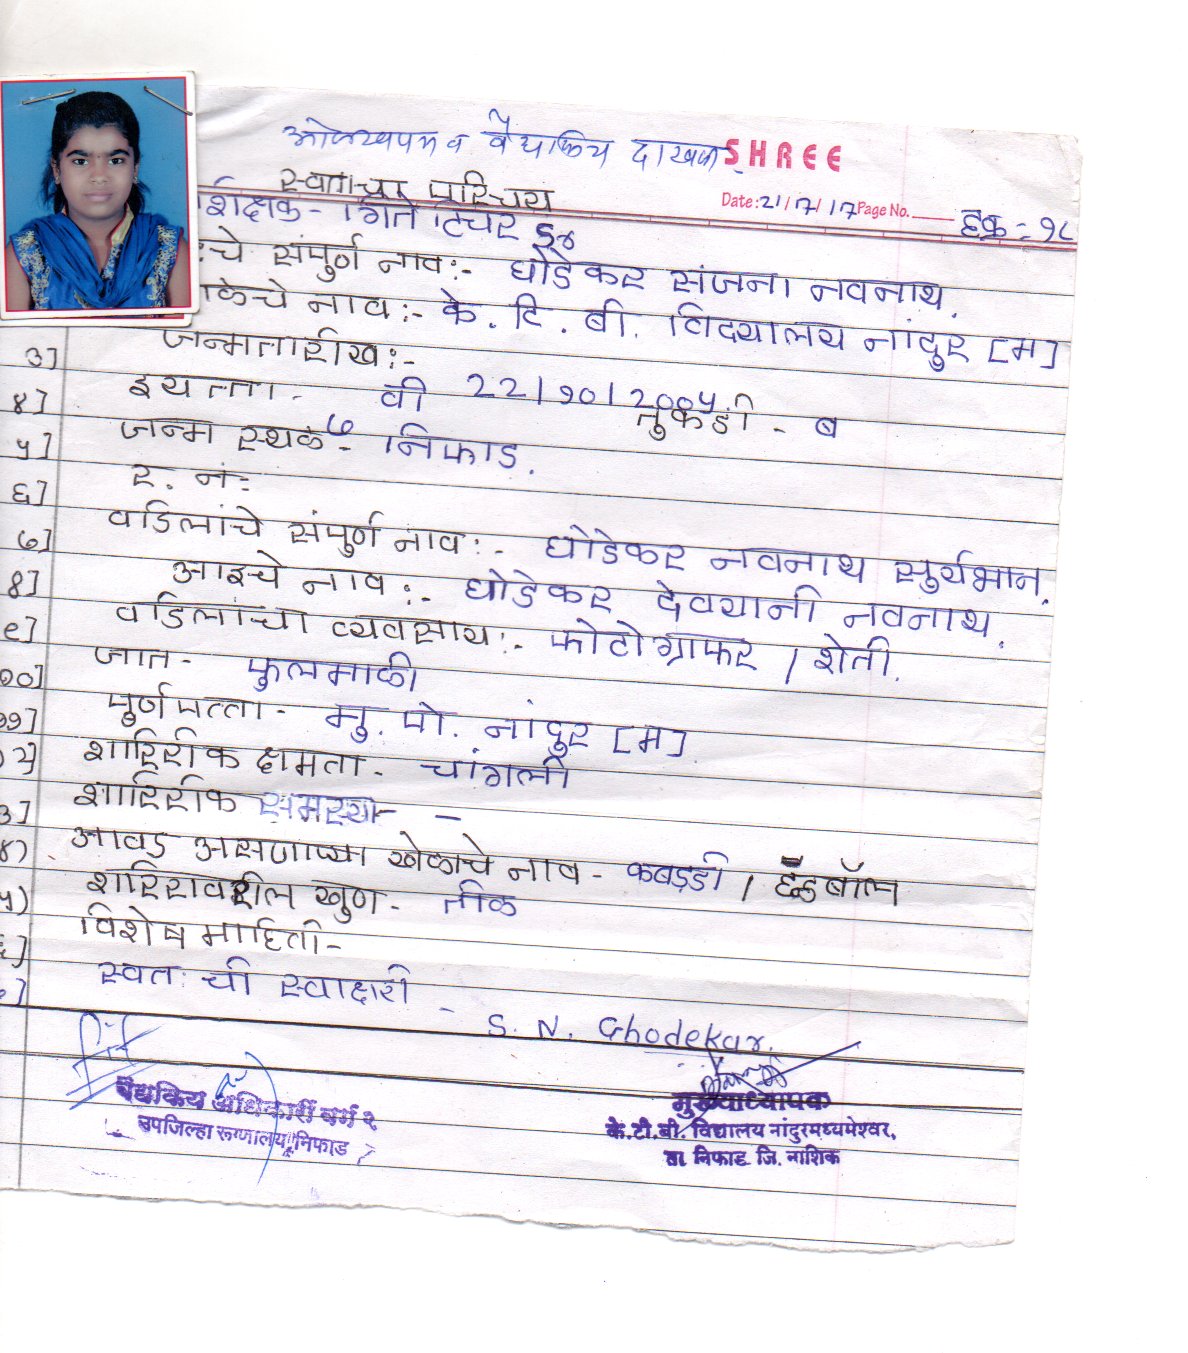 ओळखपत्र व वैद्यकिय दाखला
SHREE
स्वतःचा परिचय
Date: 21/7/17 Page No.
हक्र = १८
शिक्षक - गिते टिचर
चे संपुर्ण नाव :- घोडेकर संजना नवनाथ.
ळेचे नाव :- के. टि. बी. विद्यालय नांदुर [म]
३] जन्मतारीख :- 22/१०/2००५
४] इयत्ता - ७ वी तुकडी - ब
५] जन्म स्थळ - निफाड.
६] र. नं :
७] वडिलांचे संपुर्ण नाव :- घोडेकर नवनाथ सुर्यभान.
8] आइचे नाव :- घोडेकर देवयानी नवनाथ.
९] वडिलांचा व्यवसाय :- फोटोग्राफर / शेती.
१०] जात - फुलमाळी
११] पुर्णपत्ता - मु. पो. नांदुर [म]
२] शारिरीक क्षमता - चांगली
३] शारिरीक समस्या - –
४) आवड असणाऱ्या खेळाचे नाव - कबड्डी / हॅंडबॉल
५) शरिरावरील खुण - तीळ
६] विशेष माहिती -
७] स्वतःची स्वाक्षरी - S. N. Ghodekar.
वैद्यकिय अधिकारी वर्ग २
उपजिल्हा रूग्णालय, निफाड
मुख्याध्यापक
के.टी.बी. विद्यालय नांदुरमध्यमेश्वर,
ता निफाड जि. नाशिक